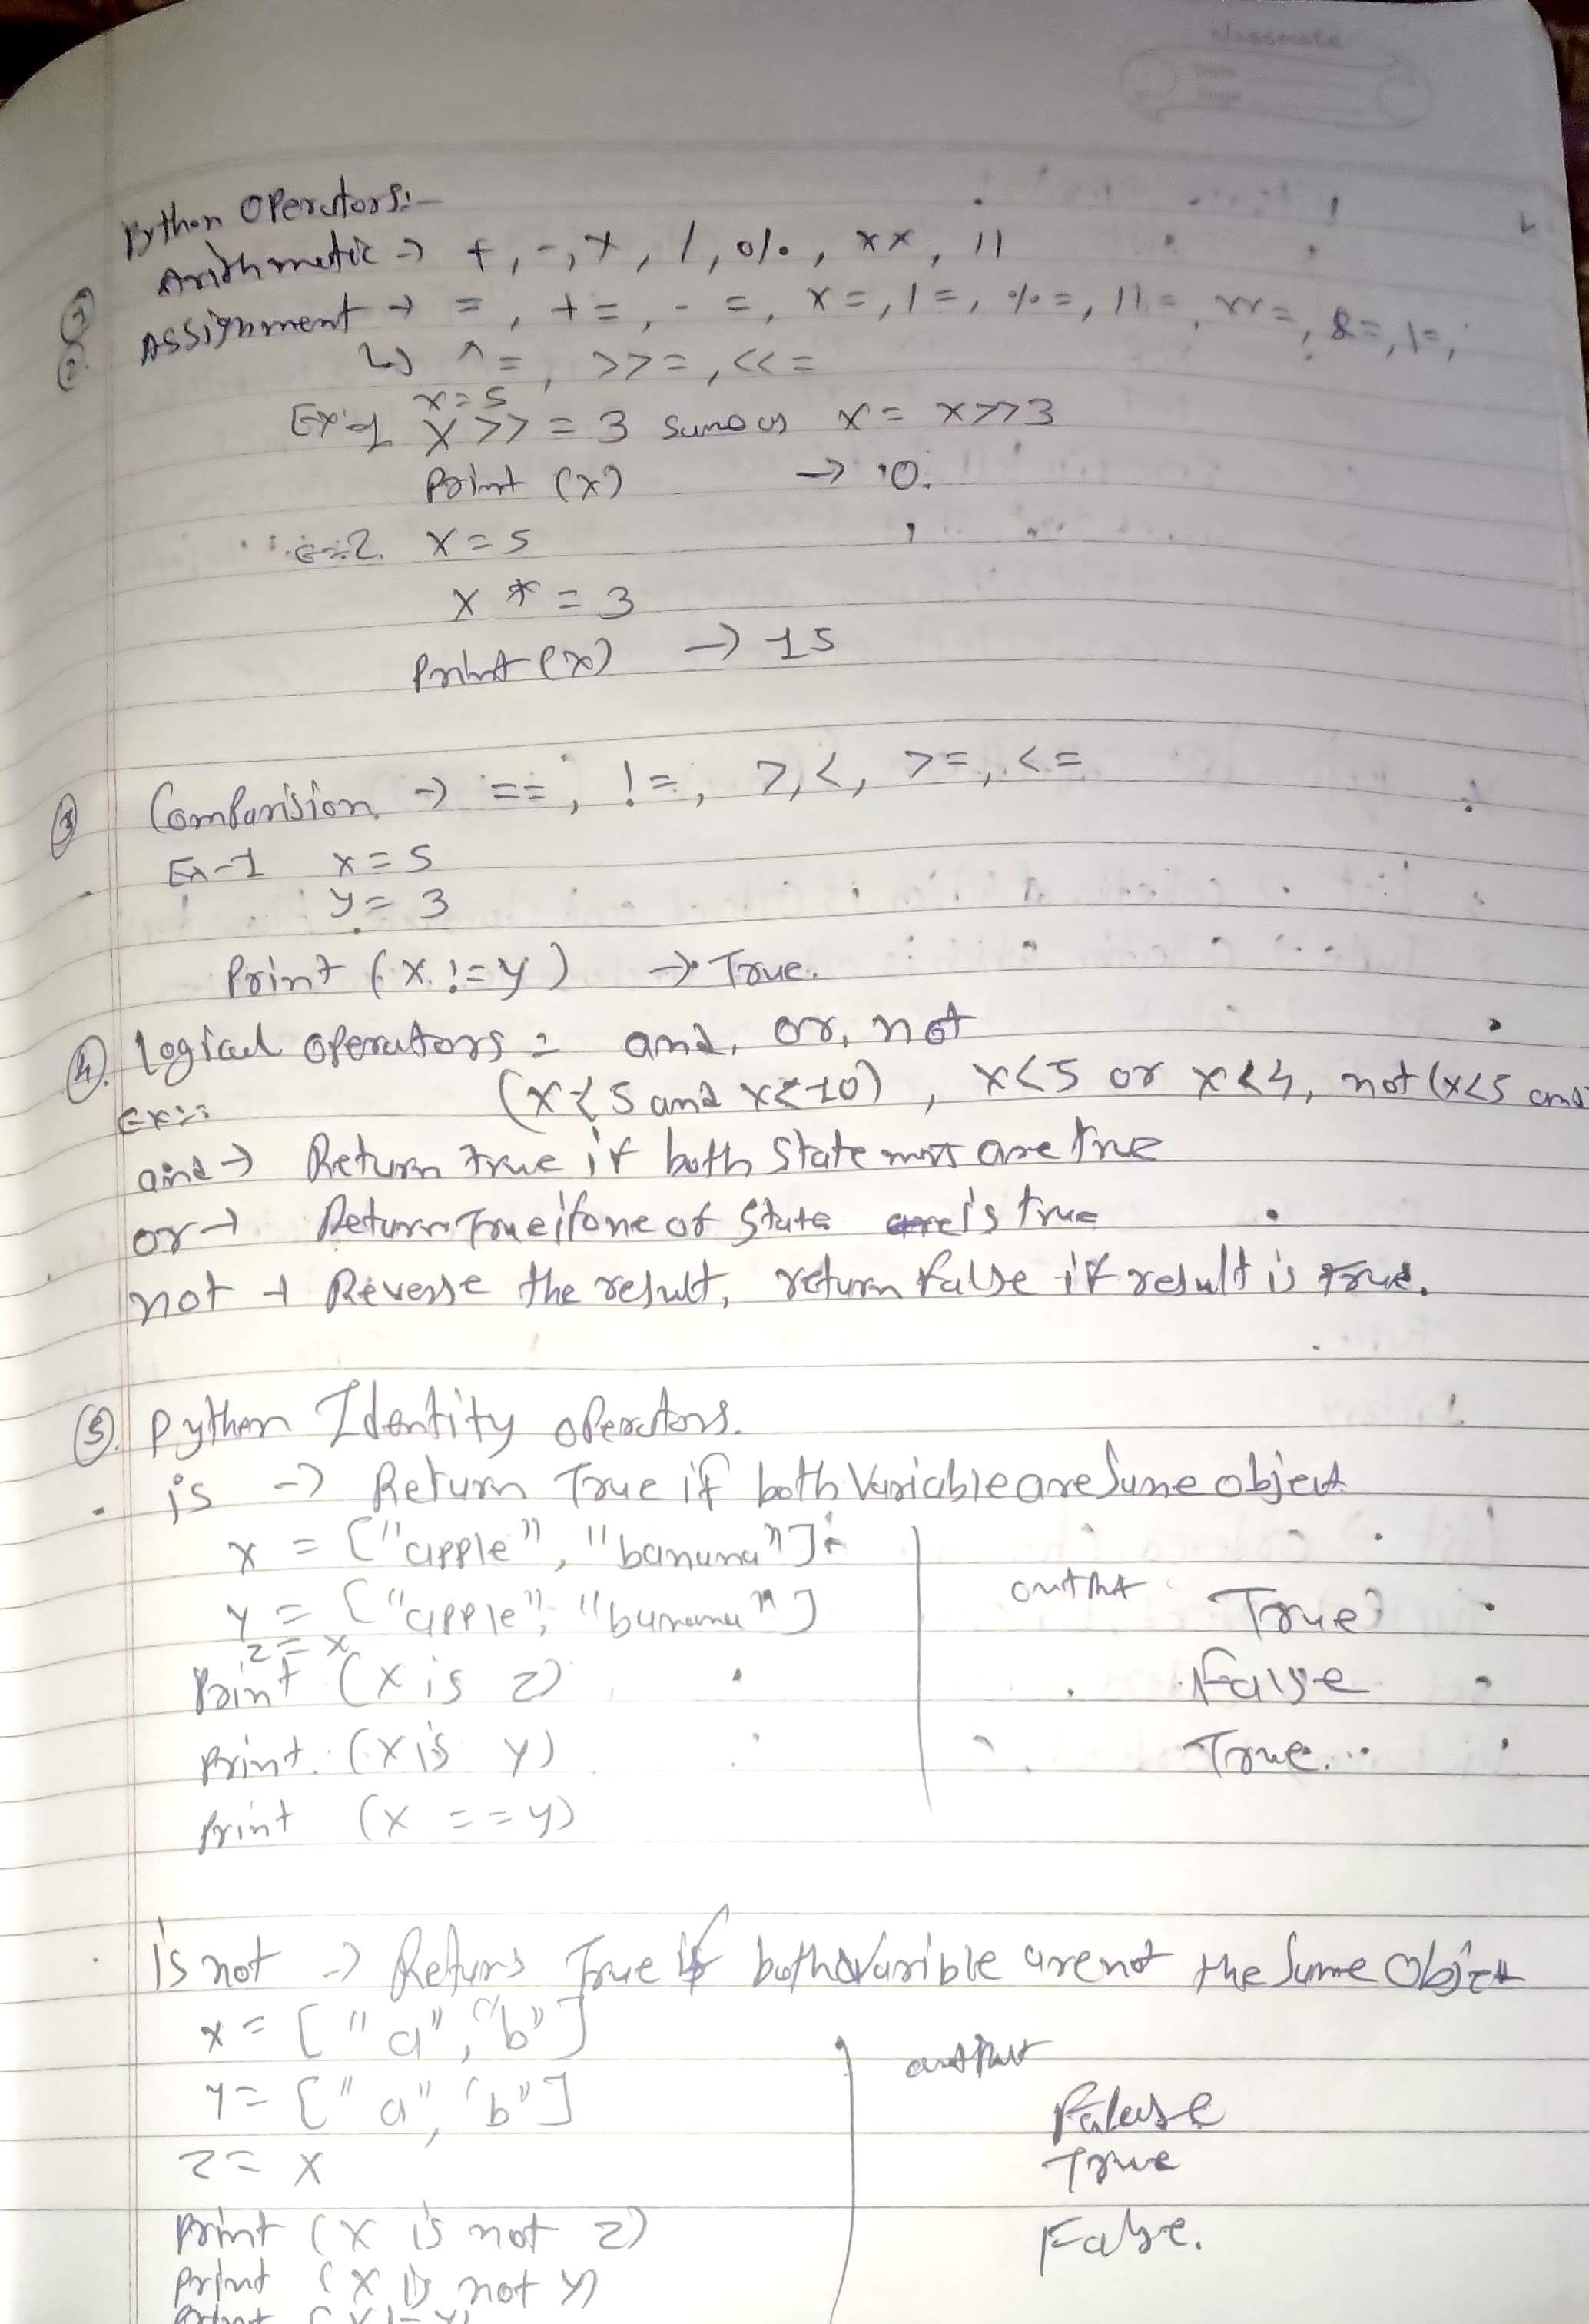 classmate
Date
Page
Python Operators:-
① Arithmetic → +, -, x, /, %, xx, //
②. Assignment → =, +=, -=, x=, /=, %=, //=, xx=, &=, |=,
↳ ^=, >>=, <<=
x=5
Ex-1 x >>= 3 same as x = x>>3
Print (x) → 0.
2. x=5
x *= 3
Print (x) → 15
③ Comparision → ==, !=, >, <, >=, <=
Ex-1 x=5
y= 3
Print (x != y) → True.
④. Logical operators = and, or, not
Ex:- (x < 5 and x < 10), x<5 or x<4, not (x<5 and
and → Return true if both Statemnts are true
or → Return True if one of State is true
not → Reverse the result, return false if result is true.
⑤. Python Identity operators.
is → Return True if both Variable are Same object
x = ["apple", "banana"]
y = ["apple", "banana"] output True
z = x
Print (x is z) False
Print (x is y) True.
Print (x == y)
is not → Returs True if both Varible are not the Same Object
x = ["a", "b"] output
y= ["a", "b"] False
z= x True
Print (x is not z) False.
Print (x is not y)
Print (x != y)